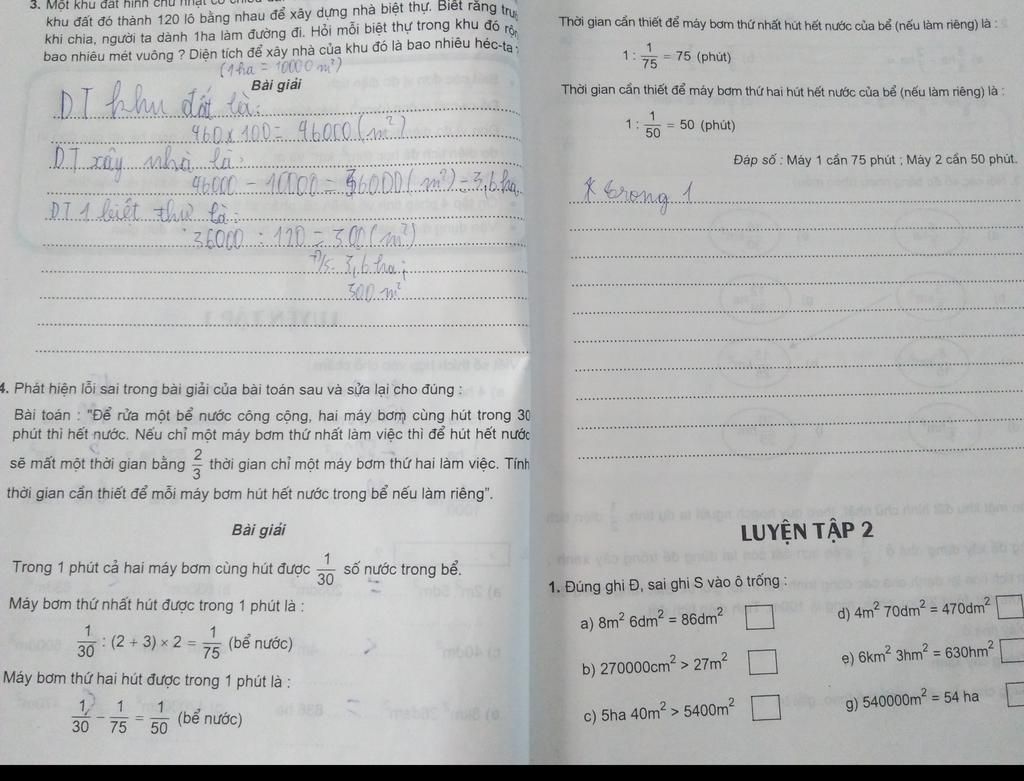 3. Một khu đất hình chữ nhật có chiều
khu đất đó thành 120 lô bằng nhau để xây dựng nhà biệt thự. Biết rằng
khi chia, người ta dành 1ha làm đường đi. Hỏi mỗi biệt thự trong khu đó
bao nhiêu mét vuông ? Diện tích để xây nhà của khu đó là bao nhiêu héc-ta
(1ha = 10000 m²)
Bài giải
DT khu đất là:
460 x 100 = 46000 (m²)
DT xây nhà là:
46000 - 10000 = 36000 (m²) = 3,6 ha
DT 1 biệt thự là:
36000 : 120 = 300 (m²)
Đ/s: 3,6 ha;
300 m²
4. Phát hiện lỗi sai trong bài giải của bài toán sau và sửa lại cho đúng :
Bài toán : "Để rửa một bể nước công cộng, hai máy bơm cùng hút trong 30
phút thì hết nước. Nếu chỉ một máy bơm thứ nhất làm việc thì để hút hết nước
sẽ mất một thời gian bằng 2/3 thời gian chỉ một máy bơm thứ hai làm việc. Tính
thời gian cần thiết để mỗi máy bơm hút hết nước trong bể nếu làm riêng".
Bài giải
Trong 1 phút cả hai máy bơm cùng hút được 1/30 số nước trong bể.
Máy bơm thứ nhất hút được trong 1 phút là :
1/30 : (2 + 3) × 2 = 1/75 (bể nước)
Máy bơm thứ hai hút được trong 1 phút là :
1/30 - 1/75 = 1/50 (bể nước)
Thời gian cần thiết để máy bơm thứ nhất hút hết nước của bể (nếu làm riêng) là :
1 : 1/75 = 75 (phút)
Thời gian cần thiết để máy bơm thứ hai hút hết nước của bể (nếu làm riêng) là :
1 : 1/50 = 50 (phút)
Đáp số : Máy 1 cần 75 phút ; Máy 2 cần 50 phút.
* trong 1
LUYỆN TẬP 2
1. Đúng ghi Đ, sai ghi S vào ô trống :
a) 8m² 6dm² = 86dm²
d) 4m² 70dm² = 470dm²
b) 270000cm² > 27m²
e) 6km² 3hm² = 630hm²
c) 5ha 40m² > 5400m²
g) 540000m² = 54 ha